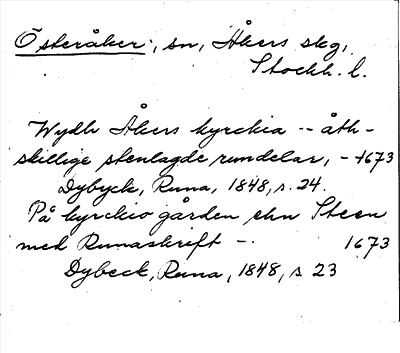 Österåker, sn, Åkers skg,
Stockh. l.
Wydh Åkers kyrckia -- åth-
skillige stenlagde rundelar, - 1673
Dybyck, Runa, 1848, s. 24.
På kyrckio gården ehn Steen
med Runaskrift -. 1673
Dybeck, Runa, 1848, s 23